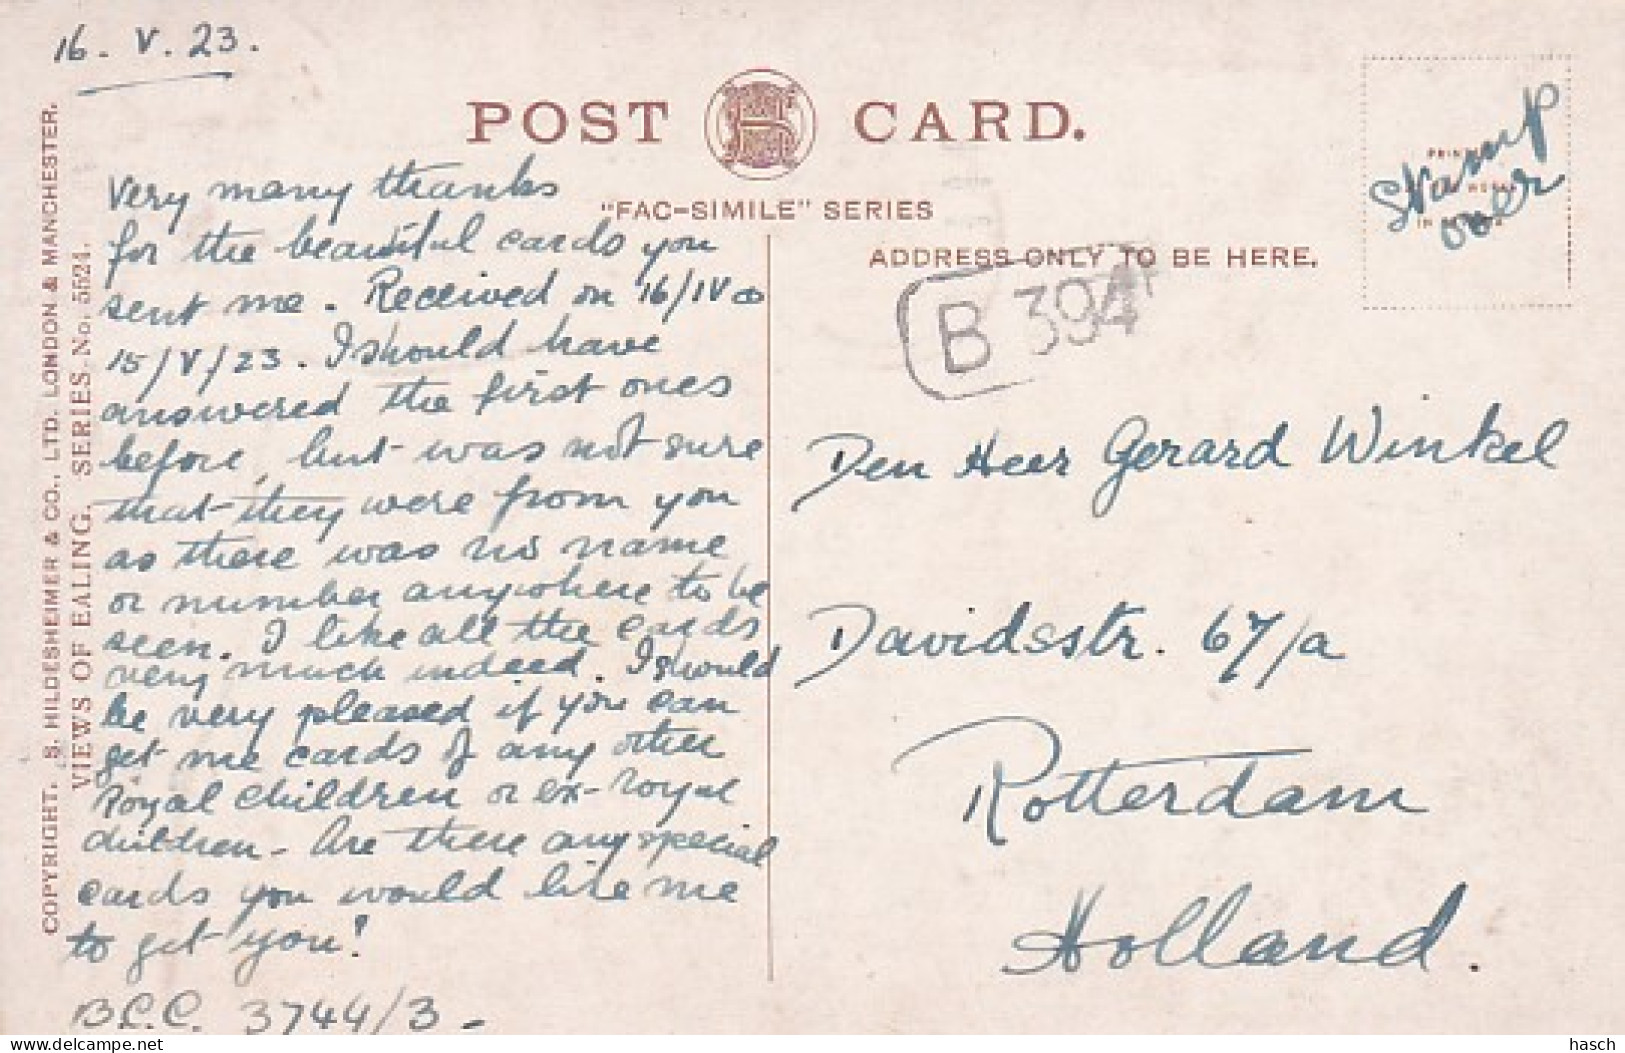 16. V. 23.
POST CARD.
"FAC-SIMILE" SERIES
ADDRESS ONLY TO BE HERE.
Stamp
over
B 394
Very many thanks
for the beautiful cards you
sent me. Received on 16/IV &
15/V/23. I should have
answered the first ones
before, but was not sure
that they were from you
as there was no name
or number anywhere to be
seen. I like all the cards
very much indeed. I should
be very pleased if you can
get me cards of any other
Royal children or ex-royal
children. Are there any special
cards you would like me
to get you!
B.C.C. 3744/3.
Den Heer Gerard Winkel
Davidsstr. 67/a
Rotterdam
Holland.
COPYRIGHT. S. HILDESHEIMER & CO., LTD. LONDON & MANCHESTER.
VIEWS OF EALING. SERIES No. 5524.
delcampe.net
hasch